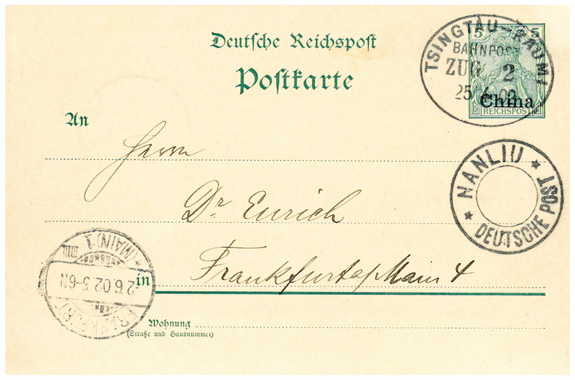 Deutsche Reichspost
Postkarte
5 5
China
REICHSPOST
TSINGTAU-KAUMI
BAHNPOST
ZUG 2
An
Herrn
NANLIU
DEUTSCHE POST
Dr Eurich
Frankfurt a/Main 4
(MAIN) 1
2 6.02.5-6N
in
Wohnung
(Straße und Hausnummer)